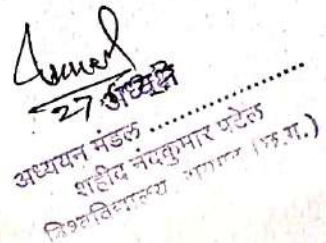 27 अध्यक्ष
अध्ययन मंडल ..................
शहीद नंदकुमार पटेल
विश्वविद्यालय, रायगढ़ (छ.ग.)